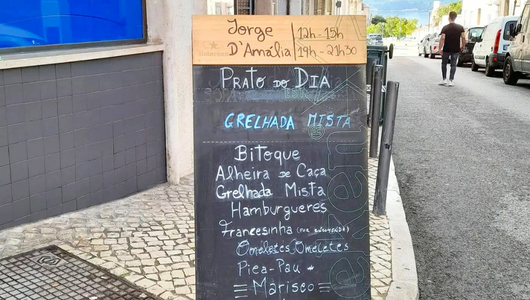 Jorge D'Amália
12h - 15h
19h - 21h30
PRATO DO DIA
GRELHADA MISTA
Bitoque
Alheira de Caça
Grelhada Mista
Hamburgueres
Francesinha
Omeletes Omeletes
Pica-Pau
Marisco